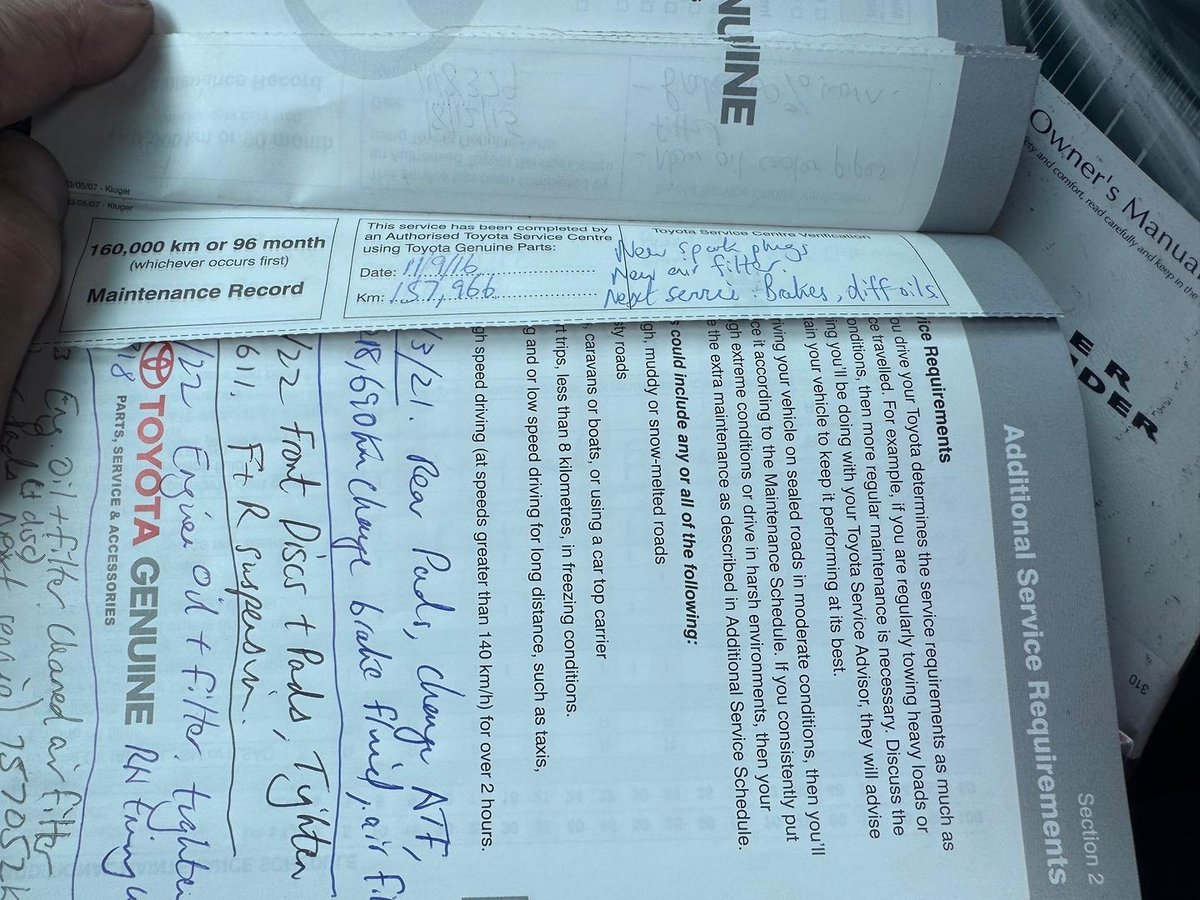 NUINE
GENUINE
3/05/07 - Kluger
3/05/07 - Kluger
160,000 km or 96 month
(whichever occurs first)
Maintenance Record
This service has been completed by
an Authorised Toyota Service Centre
using Toyota Genuine Parts:
Date: 11/9/16
Km: 157,966
Toyota Service Centre Verification
New spark plugs
New air filter
Next service Brakes, diff oils
Owner's Manual
ety and comfort, read carefully and keep in the
E R
NDER
310
Section 2
Additional Service Requirements
ice Requirements
ou drive your Toyota determines the service requirements as much as
ce travelled. For example, if you are regularly towing heavy loads or
onditions, then more regular maintenance is necessary. Discuss the
ing you'll be doing with your Toyota Service Advisor, they will advise
ain your vehicle to keep it performing at its best.
iving your vehicle on sealed roads in moderate conditions, then you'll
ce it according to the Maintenance Schedule. If you consistently put
gh extreme conditions or drive in harsh environments, then your
e the extra maintenance as described in Additional Service Schedule.
s could include any or all of the following:
gh, muddy or snow-melted roads
sty roads
, caravans or boats, or using a car top carrier
rt trips, less than 8 kilometres, in freezing conditions.
g and or low speed driving for long distance, such as taxis,
gh speed driving (at speeds greater than 140 km/h) for over 2 hours.
/3/21. Rear Pads, change ATF,
18,690km change brake fluid, air fi
/22 Front Discs + Pads, Tighten
611. F + R suspension.
/22 Engine Oil + filter, tighten
TOYOTA GENUINE
PARTS, SERVICE & ACCESSORIES
918
RH
3 Eng. Oil + filter. Cleaned air filter
pads & disc)
Next service) 257052k